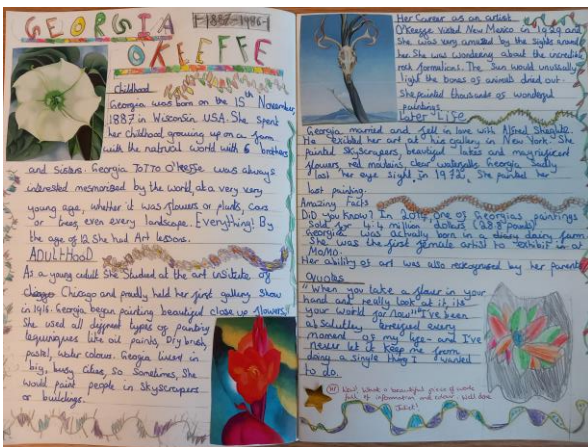 GEORGIA
1887-1986
O'KEEFFE
Childhood
Georgia was born on the 15th November
1887 in Wisconsin USA. She spent
her childhood growing up on a farm
with the natural world with 6 brothers
and sisters. Georgia TOTTO O'Keeffe was always
interested mesmorised by the world, at a very very
young age, whether it was flowers or plants, cars
or trees, even every landscape. Everything! By
the age of 12 She had Art lessons.
ADULTHOOD
As a young adult She Studied at the art insitute of
Chicago and proudly held her first gallery show
in 1916. Georgia began painting beautiful close up flowers.
She used all different types of painting
tequniques like oil paints, Dry brush,
pastel, water colour. Georgia lived in
big, busy cities, so Sometimes, She
would paint people in Skyscrapers
or buildings.
Her Career as an artist
O'Keeffe visited New Mexico in 1929 and
She was very amazed by the sights around
her. She was wondering about the incredible
rock formations. The Sun would unusually
light the bones of animals dried out.
She painted thousands of wonderful
paintings.
Later Life
Georgia married and fell in love with Alfred
He her art at his gallery in New York. She
painted Skyscrapers, beautiful lakes and magnificent
flowers, red , clear waterfalls. Georgia Sadly
lost her eye Sight in 1972. She painted her
last painting.
Amazing Facts
DiD you Know? In 2014, one of Georgias paintings
Sold for 44.4 million dollars (28.8 Pounds)
Georgia was actually born in a dairy farm
She was the first female artist to exhibit in a
MoMA
Her ability of art was also recognised by her parents
Quotes
"When you take a flower in your
hand and really look at it, its
your world for now" "I've been
absalutley terrefied every
moment of my life - and I've
never let it keep me from
doing a single thing I wanted
to do.
Wow! What a beautiful piece of work
full of information and colour. Well done